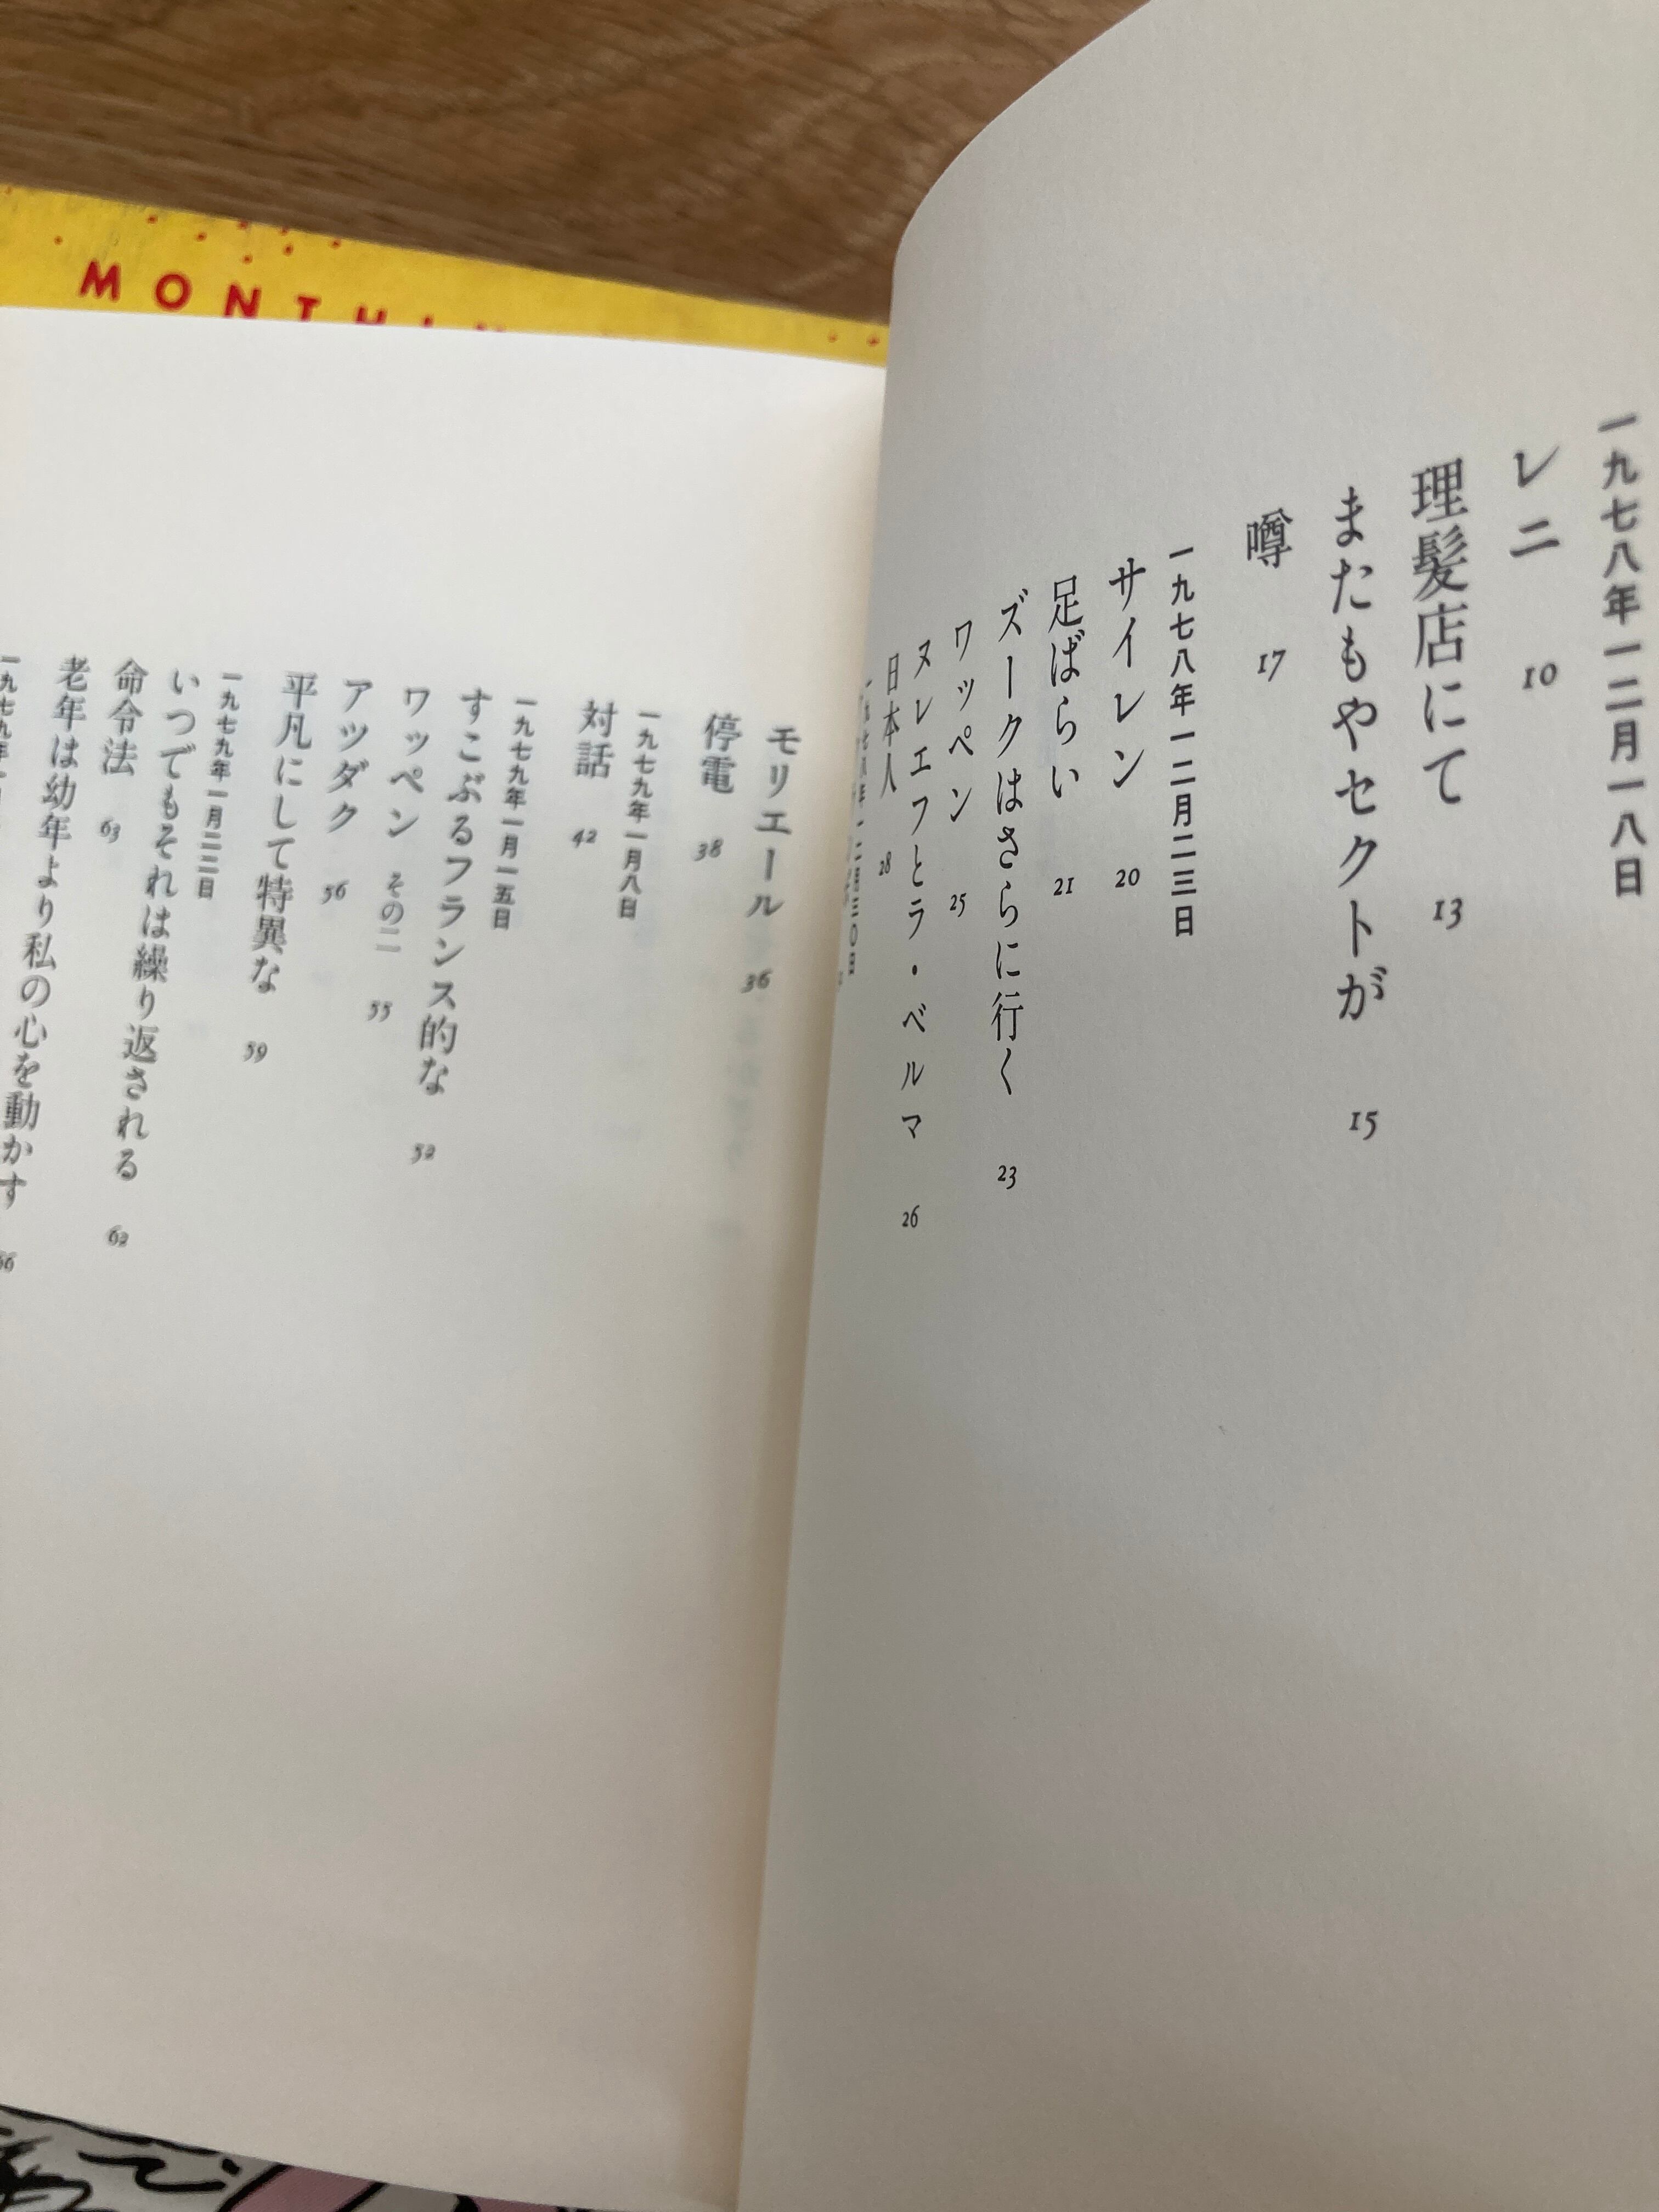 MONTHLY
一九七八年一二月一八日
レニ 10
理髪店にて 13
またもやセクトが 15
噂 17
一九七八年一二月二三日
サイレン 20
足ばらい 21
ズークはさらに行く 23
ワッペン 25
ヌレエフとラ・ベルマ 26
日本人 28
モリエール 36
停電 38
一九七九年一月八日
対話 42
一九七九年一月一五日
すこぶるフランス的な 52
ワッペン その二 55
アツダク 56
平凡にして特異な 59
一九七九年一月二二日
いつでもそれは繰り返される 62
命令法 63
老年は幼年より私の心を動かす 66
一九七九年